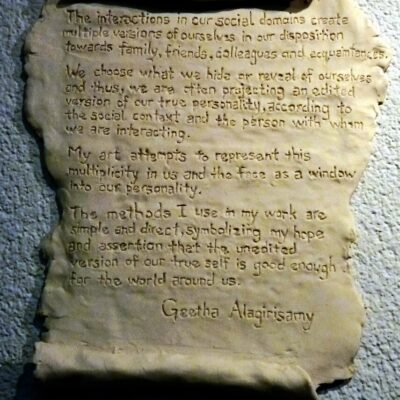 The interactions in our social domains create
multiple versions of ourselves in our disposition
towards family, friends, colleagues and acquaintances.
We choose what we hide or reveal of ourselves
and thus, we are often projecting an edited
version of our true personality, according to
the social context and the person with whom
we are interacting.
My art attempts to represent this
multiplicity in us and the face as a window
into our personality.
The methods I use in my work are
simple and direct, symbolizing my hope
and assertion that the unedited
version of our true self is good enough
for the world around us.
Geetha Alagirisamy